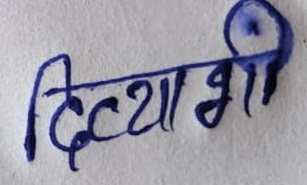 दिव्याशी